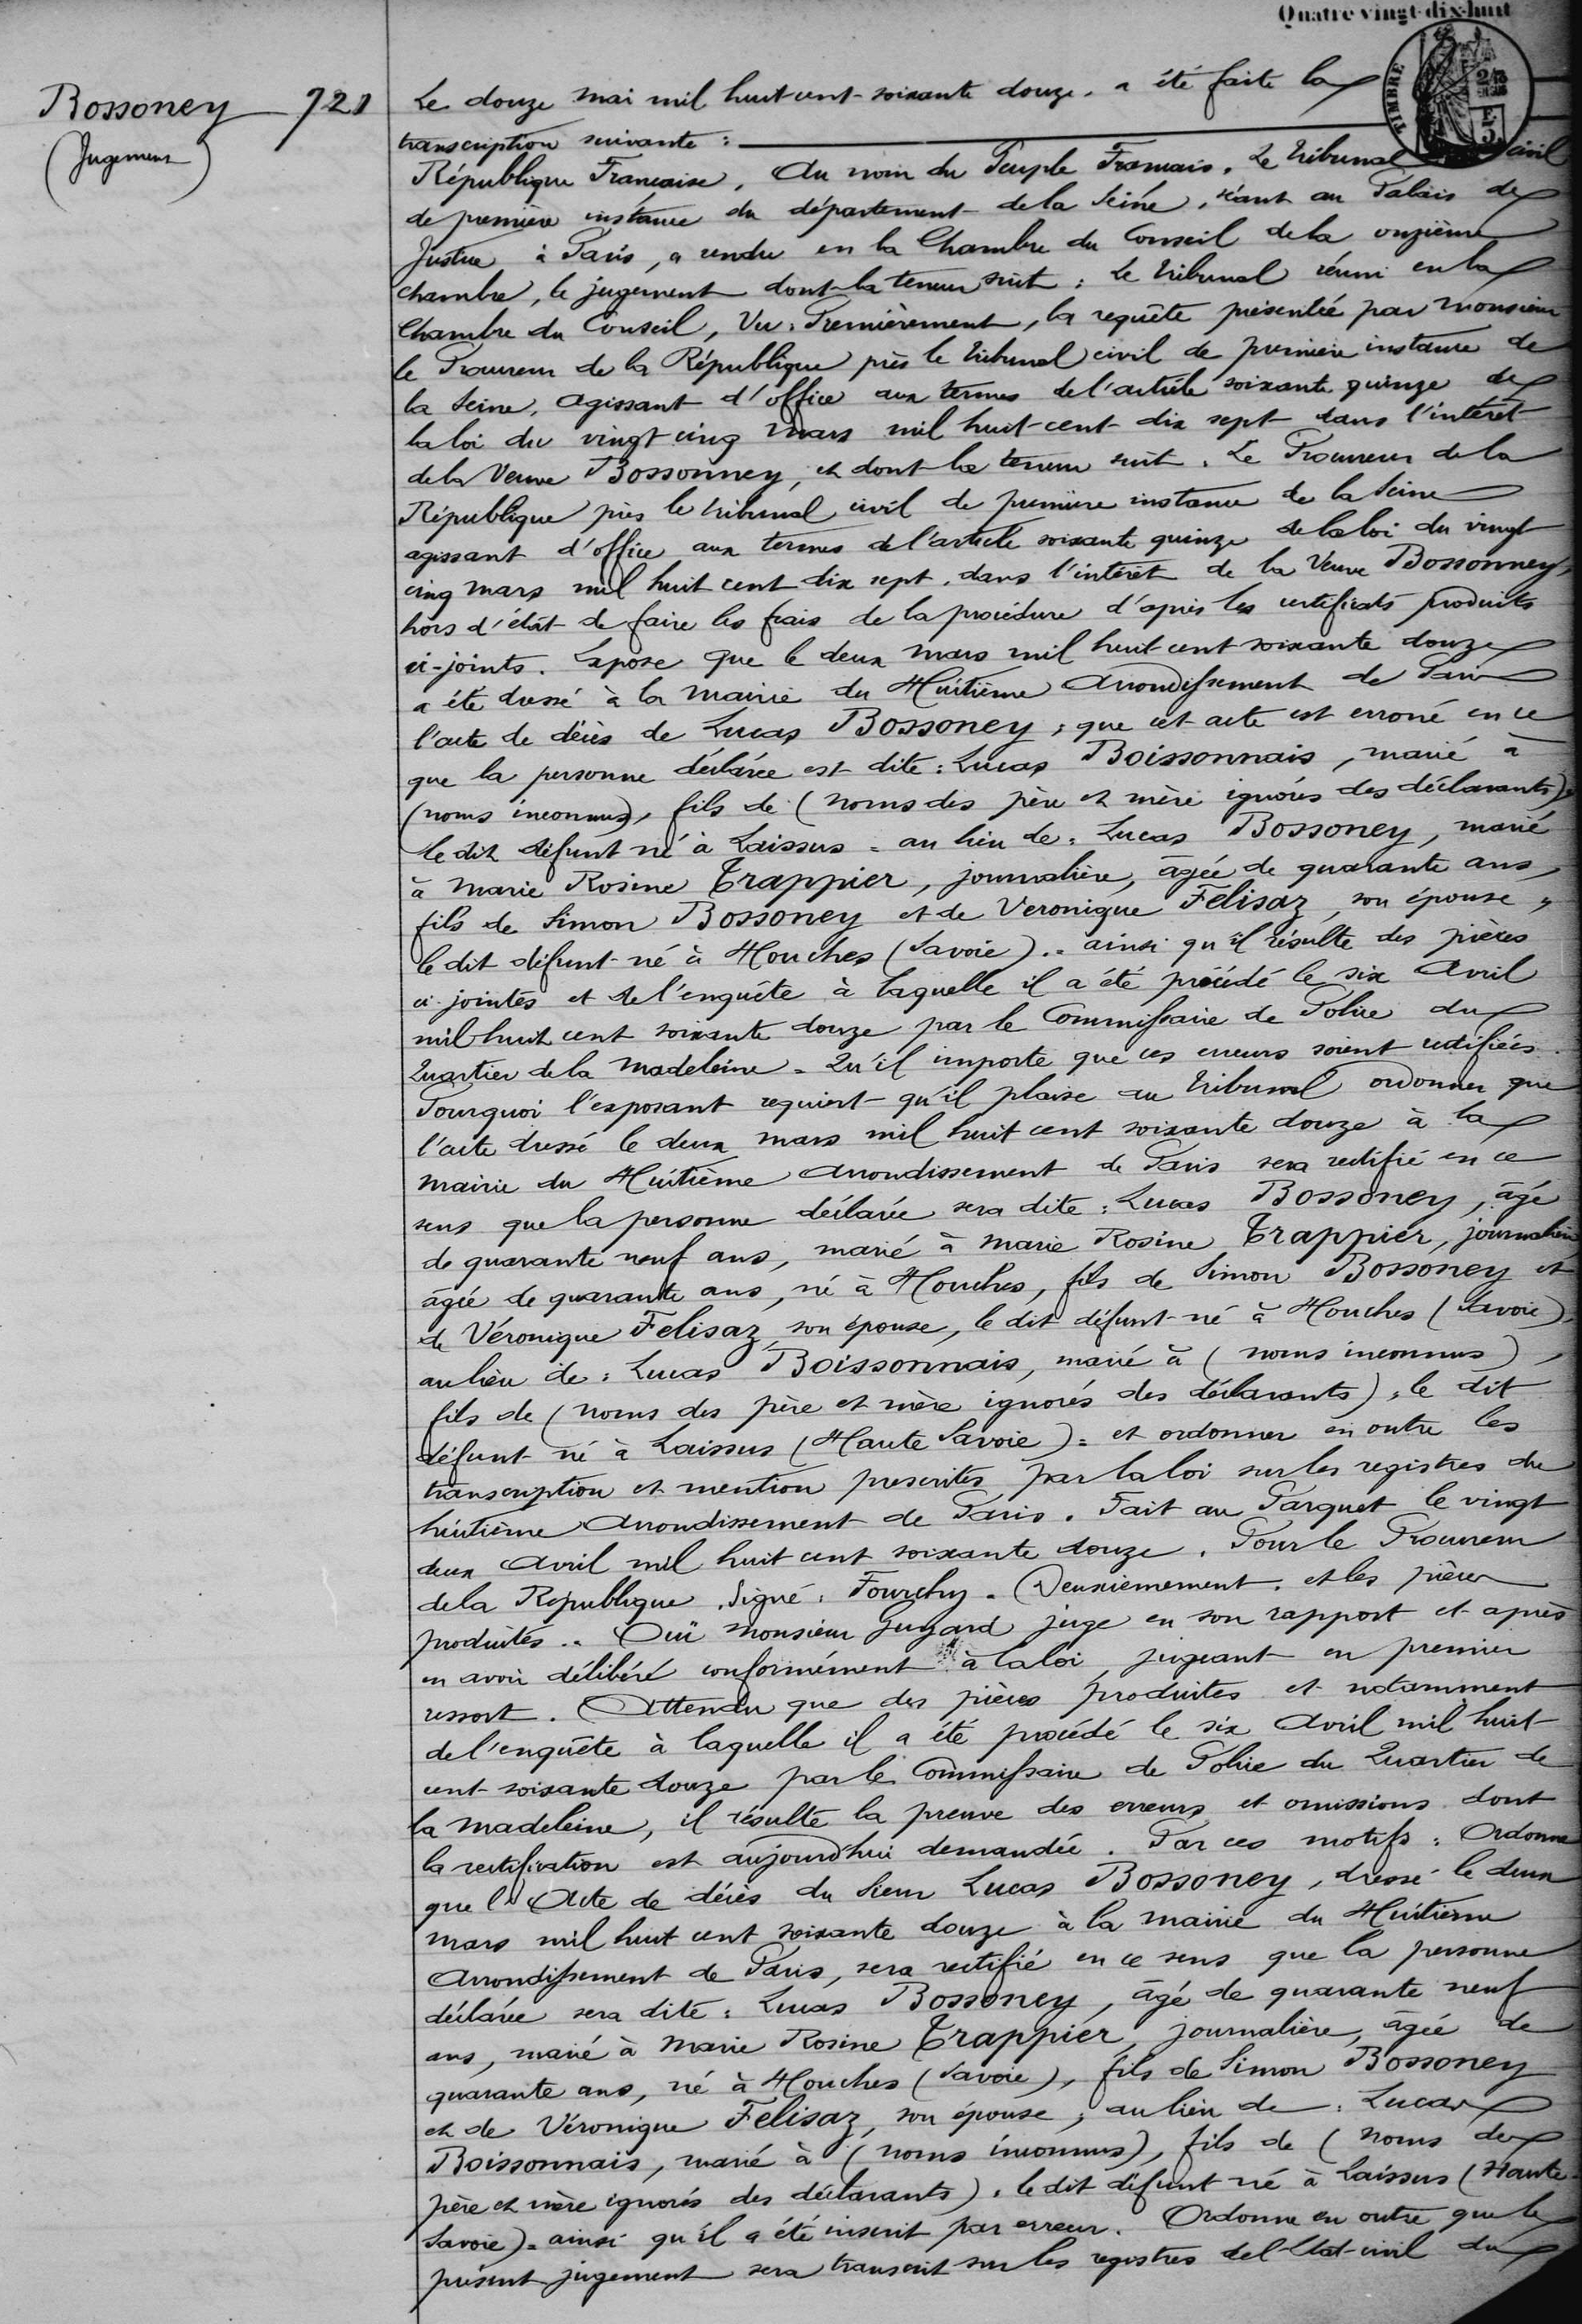 Quatre vingt-dix-huit
TIMBRE
Bossoney 721
(Jugement)
Le douze mai mil huit cent soixante douze, a été faite la
transcription suivante :
République Française, Au nom du Peuple Français. Le Tribunal civil
de première instance du département de la Seine, séant au Palais de
Justice à Paris, a rendu en la Chambre du Conseil de la onzième
chambre, le jugement dont la teneur suit : Le Tribunal réuni en la
Chambre du Conseil, Vu : Premièrement, la requête présentée par Monsieur
le Procureur de la République près le Tribunal civil de première instance de
la Seine, agissant d'office aux termes de l'article soixante quinze de
la loi du vingt cinq Mars mil huit-cent dix sept dans l'intérêt
de la Veuve Bossonney, et dont la teneur suit. Le Procureur de la
République près le tribunal civil de première instance de la Seine
agissant d'office aux termes de l'article soixante quinze de la loi du vingt
cinq mars mil huit cent dix sept, dans l'intérêt de la Veuve Bossonney,
hors d'état de faire les frais de la procédure d'après les certificats produits
ci-joints. Expose que le deux Mars mil huit cent soixante douze
a été dressé à la Mairie du Huitième Arrondissement de Paris
l'acte de décès de Lucas Bossoney ; que cet acte est erroné en ce
que la personne déclarée est dite : Lucas Boissonnais, marié à
(noms inconnus), fils de (noms des père et mère ignorés des déclarants),
le dit défunt né à Laissus = au lieu de : Lucas Bossoney, marié
à Marie Rosine Trappier, journalière, âgée de quarante ans,
fils de Simon Bossoney et de Veronique Felisaz, son épouse,
le dit défunt né à Houches (Savoie) .. ainsi qu'il résulte des pièces
ci-jointes et de l'enquête à laquelle il a été procédé le six Avril
mil huit cent soixante douze par le Commissaire de Police du
Quartier de la Madeleine = Qu'il importe que ces erreurs soient rectifiées.
Pourquoi l'exposant requiert qu'il plaise au Tribunal ordonner que
l'acte dressé le deux mars mil huit cent soixante douze à la
Mairie du Huitième Arrondissement de Paris sera rectifié en ce
sens que la personne déclarée sera dite : Lucas Bossoney, âgé
de quarante neuf ans, marié à Marie Rosine Trappier, journalière
âgée de quarante ans, né à Houches, fils de Simon Bossoney et
de Véronique Felisaz, son épouse, le dit défunt né à Houches (Savoie),
au lieu de : Lucas Boissonnais, marié à (noms inconnus),
fils de (noms des père et mère ignorés des déclarants), le dit
défunt né à Laissus (Haute Savoie) = et ordonner en outre les
transcription et mention prescrites par la loi sur les registres du
huitième Arrondissement de Paris. Fait au Parquet le vingt
deux Avril mil huit cent soixante douze. Pour le Procureur
de la République. Signé : Fourchy. Deuxièmement, et les pièces
produites .. Ouï Monsieur Guyard juge en son rapport et après
en avoir délibéré conformément à la loi, jugeant en premier
ressort. Attendu que des pièces produites et notamment
de l'enquête à laquelle il a été procédé le six Avril mil huit
cent soixante douze par le Commissaire de Police du Quartier de
la Madeleine, il résulte la preuve des erreurs et omissions dont
la rectification est aujourd'hui demandée. Par ces motifs : Ordonne
que l'Acte de décès du Sieur Lucas Bossoney, dressé le deux
Mars mil huit cent soixante douze à la mairie du Huitième
Arrondissement de Paris, sera rectifié en ce sens que la personne
déclarée sera dite : Lucas Bossoney, âgé de quarante neuf
ans, marié à Marie Rosine Trappier, journalière, âgée de
quarante ans, né à Houches (Savoie), fils de Simon Bossoney
et de Véronique Felisaz, son épouse ; au lieu de : Lucas
Boissonnais, marié à (noms inconnus), fils de (noms des
père et mère ignorés des déclarants), le dit défunt né à Laissus (Haute
Savoie) = ainsi qu'il a été inscrit par erreur. Ordonne en outre que le
présent jugement sera transcrit sur les registres de l'Etat-civil du